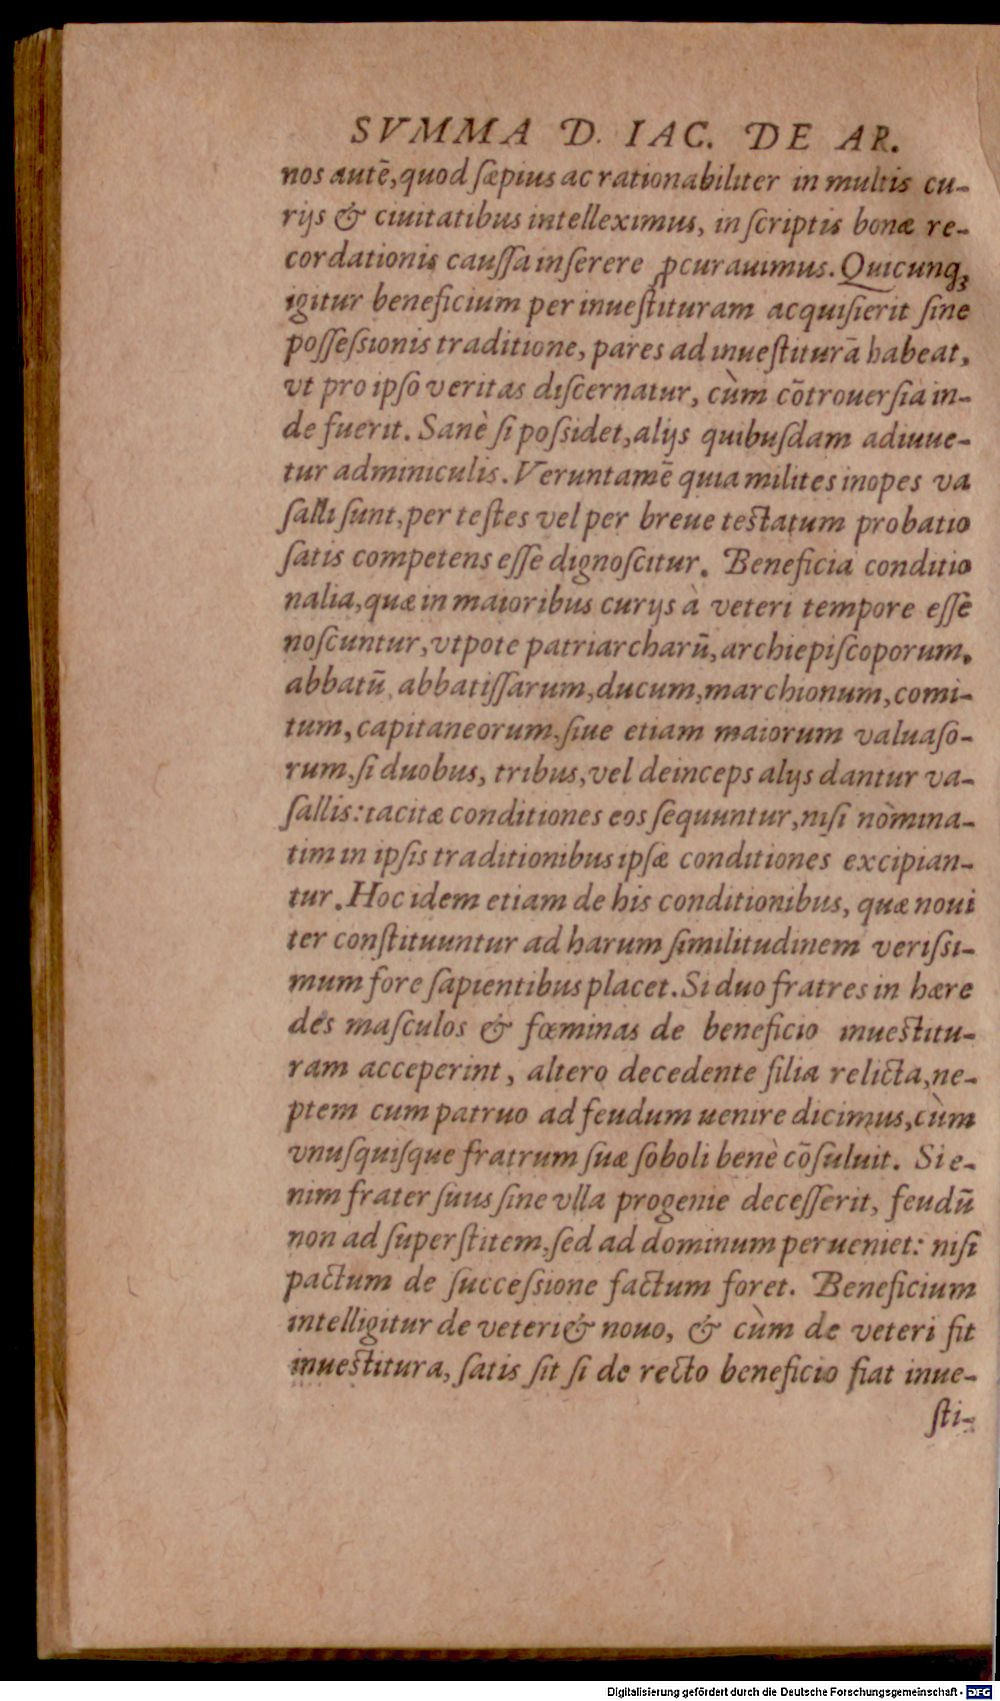 SVMMA D. IAC. DE AR.
nos autē, quod sæpius ac rationabiliter in multis cu-
rijs & ciuitatibus intelleximus, in scriptis bonæ re-
cordationis caussa inserere ꝓcurauimus. Quicunqꝫ
igitur beneficium per inuestituram acquisierit sine
possessionis traditione, pares ad inuestiturā habeat,
vt pro ipso veritas discernatur, cùm cōtrouersia in-
de fuerit. Sanè si possidet, alijs quibusdam adiuue-
tur adminiculis. Veruntamē quia milites inopes va
salli sunt, per testes vel per breue testatum probatio
satis competens esse dignoscitur. Beneficia conditio
nalia, quæ in maioribus curijs à veteri tempore esse
noscuntur, vtpote patriarcharū, archiepiscoporum,
abbatū, abbatissarum, ducum, marchionum, comi-
tum, capitaneorum, siue etiam maiorum valuaso-
rum, si duobus, tribus, vel deinceps alijs dantur va-
sallis: tacitæ conditiones eos sequuntur, nisi nòmina-
tim in ipsis traditionibus ipsæ conditiones excipian-
tur. Hoc idem etiam de his conditionibus, quæ noui
ter constituuntur ad harum similitudinem verissi-
mum fore sapientibus placet. Si duo fratres in hære
des masculos & fœminas de beneficio inuestitu-
ram acceperint, altero decedente filia relicta, ne-
ptem cum patruo ad feudum uenire dicimus, cùm
vnusquisque fratrum suæ soboli benè cōsuluit. Si e-
nim frater suus sine vlla progenie decesserit, feudū
non ad superstitem, sed ad dominum perueniet: nisi
pactum de successione factum foret. Beneficium
intelligitur de veteri & nouo, & cùm de veteri fit
inuestitura, satis sit si de recto beneficio fiat inue-
sti-
Digitalisierung gefördert durch die Deutsche Forschungsgemeinschaft - DFG